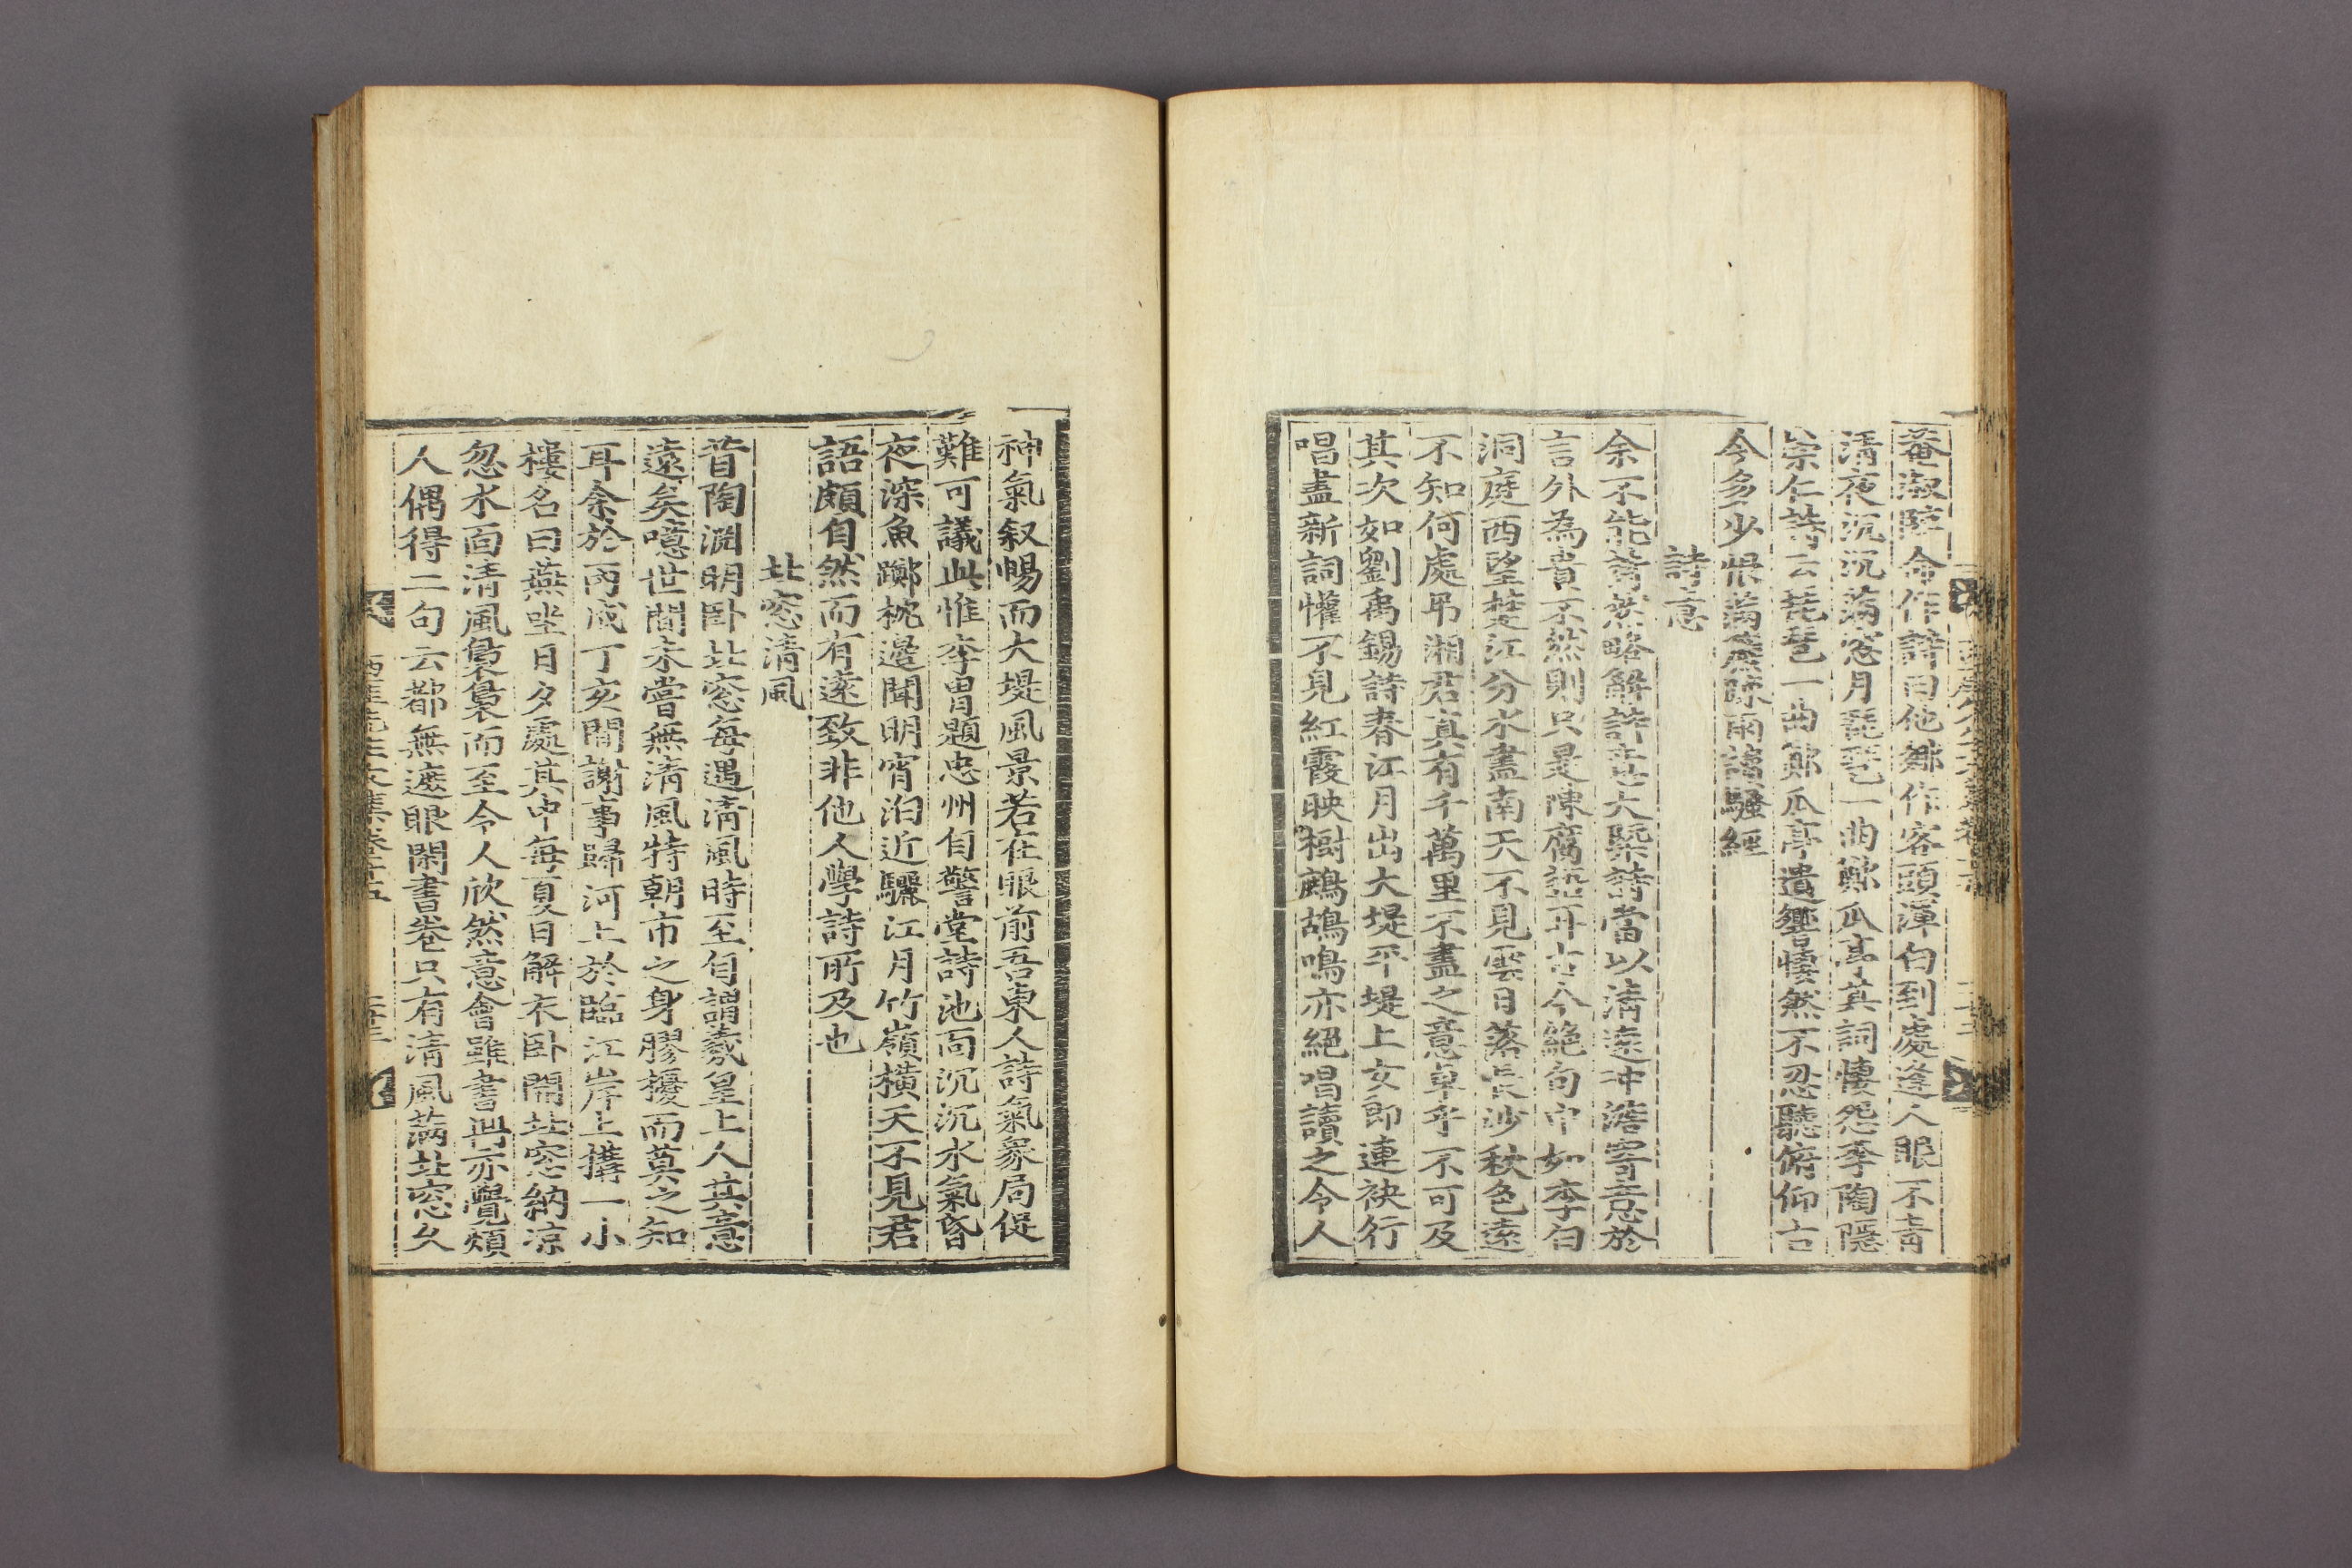 菴淑隲命作詩曰他鄉作客頭渾白到處逢人眼不靑
淸夜沉沉滿窓月琵琶一曲鄭瓜亭其詞悽怨李陶隱
崇仁詩云琵琶一曲鄭瓜亭遺響悽然不忍聽俯仰古
今多少恨滿簾踈雨讀騷經
詩意
余不能詩然略解詩意大槩詩當以淸遠冲澹寄意於
言外為貴不然則只是陳腐語耳古今絶句中如李白
洞庭西望楚江分水盡南天不見雲日落長沙秋色遠
不知何處弔湘君真有千萬里不盡之意卓乎不可及
其次如劉禹錫詩春江月出大堤平堤上女郎連袂行
唱盡新詞懽不見紅霞映樹鷓鴣鳴亦絕唱讀之令人
神氣叙暢而大堤風景若在眼前吾東人詩氣象局促
難可議此惟李胄題忠州自警堂詩池面沉沉水氣昏
夜深魚躑枕邊聞明宵泊近驪江月竹嶺橫天不見君
語頗自然而有遠致非他人學詩所及也
北窓淸風
昔陶淵明卧北窓每遇淸風時至自謂羲皇上人其意
遠矣噫世間未嘗無淸風特朝市之身膠擾而莫之知
耳余於丙戌丁亥間謝事歸河上於臨江岸上搆一小
樓名曰燕坐日夕處其中每夏日解衣卧開北窓納凉
忽水面淸風裊裊而至令人欣然意會雖書冊亦覺煩
人偶得二句云都無遮眼閑書卷只有淸風滿北窓久
西厓先生文集卷十五